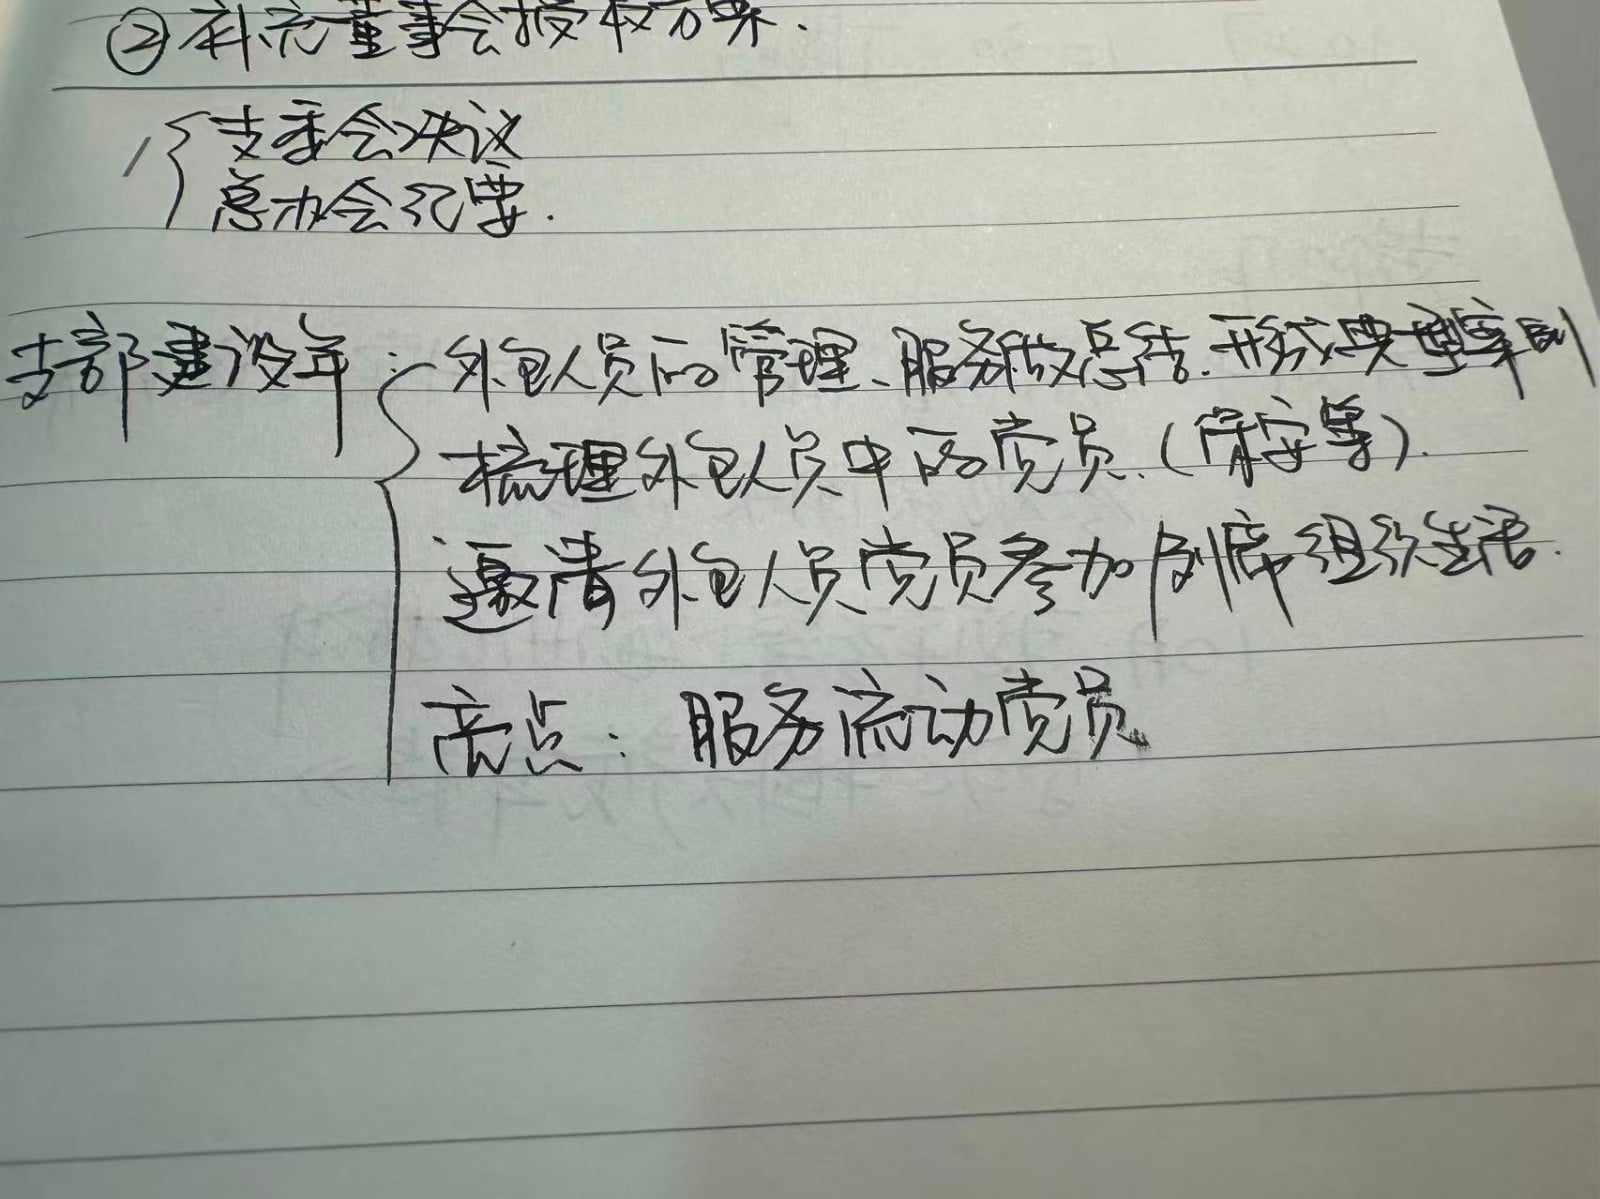 ②补充董事会授权方案.
支委会决议
总办会纪要.
支部建设年: 外包人员的管理、服务做总结.形成典型案例
梳理外包人员中的党员.(保安等).
邀请外包人员党员参加 组织生活.
亮点: 服务流动党员